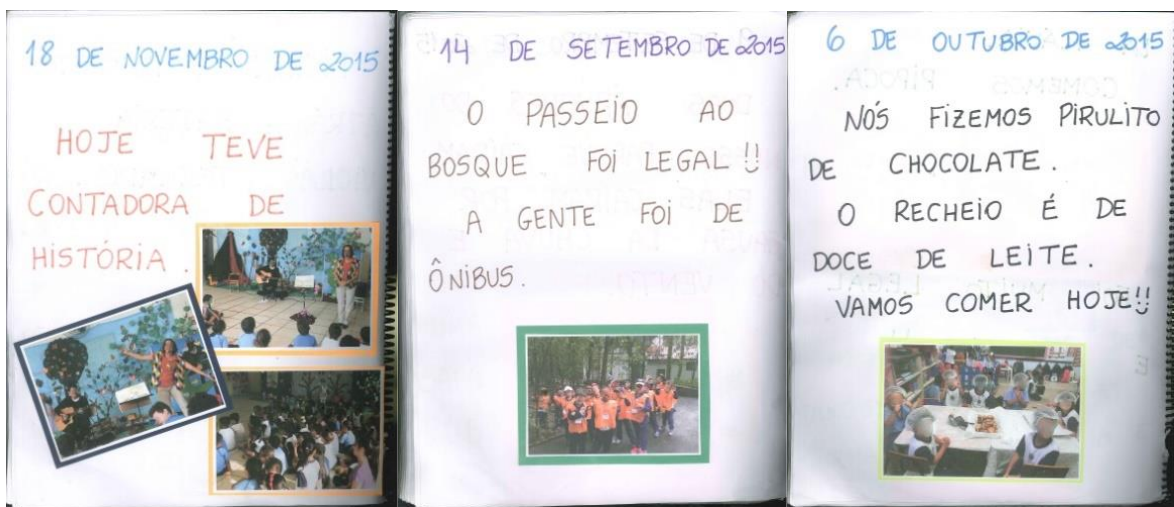 18 DE NOVEMBRO DE 2015
HOJE TEVE
CONTADORA DE
HISTÓRIA.
14 DE SETEMBRO DE 2015
O PASSEIO AO
BOSQUE FOI LEGAL!!
A GENTE FOI DE
ÔNIBUS.
6 DE OUTUBRO DE 2015
NÓS FIZEMOS PIRULITO
DE CHOCOLATE.
O RECHEIO É DE
DOCE DE LEITE.
VAMOS COMER HOJE!!